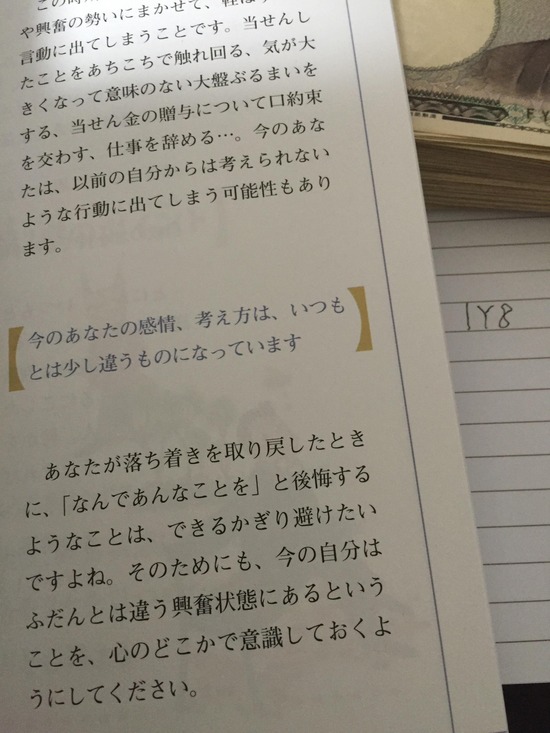 や興奮の勢いにまかせて、軽
言動に出てしまうことです。当せんし
たことをあちこちで触れ回る、気が大
きくなって意味のない大盤ぶるまいを
する、当せん金の贈与について口約束
を交わす、仕事を辞める…。今のあな
たは、以前の自分からは考えられない
ような行動に出てしまう可能性もあり
ます。
今のあなたの感情、考え方は、いつも
とは少し違うものになっています
あなたが落ち着きを取り戻したとき
に、「なんであんなことを」と後悔する
ようなことは、できるかぎり避けたい
ですよね。そのためにも、今の自分は
ふだんとは違う興奮状態にあるという
ことを、心のどこかで意識しておくよ
うにしてください。
FY
1Y8